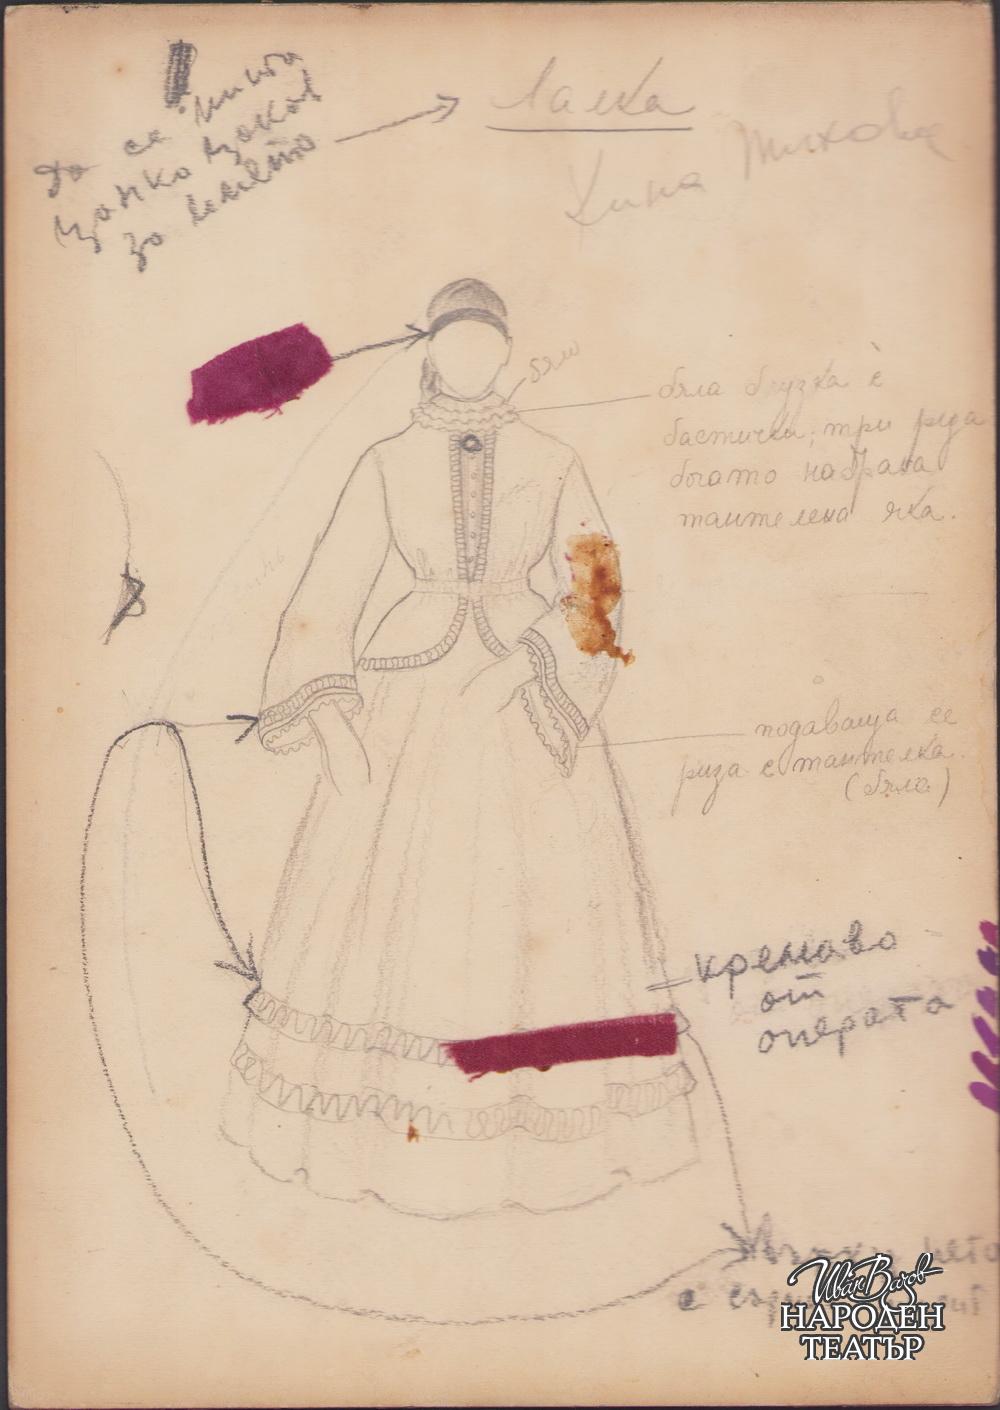 да се пита
Цанко Цоков
за
Лалка
бяло
бяла блузка с
бастички, три реда
богато набрана
тантелена яка.
подаваща се
риза с тантелка.
(бяла)
кремаво
от
операта
с
Иван Вазов
НАРОДЕН
ТЕАТЪР